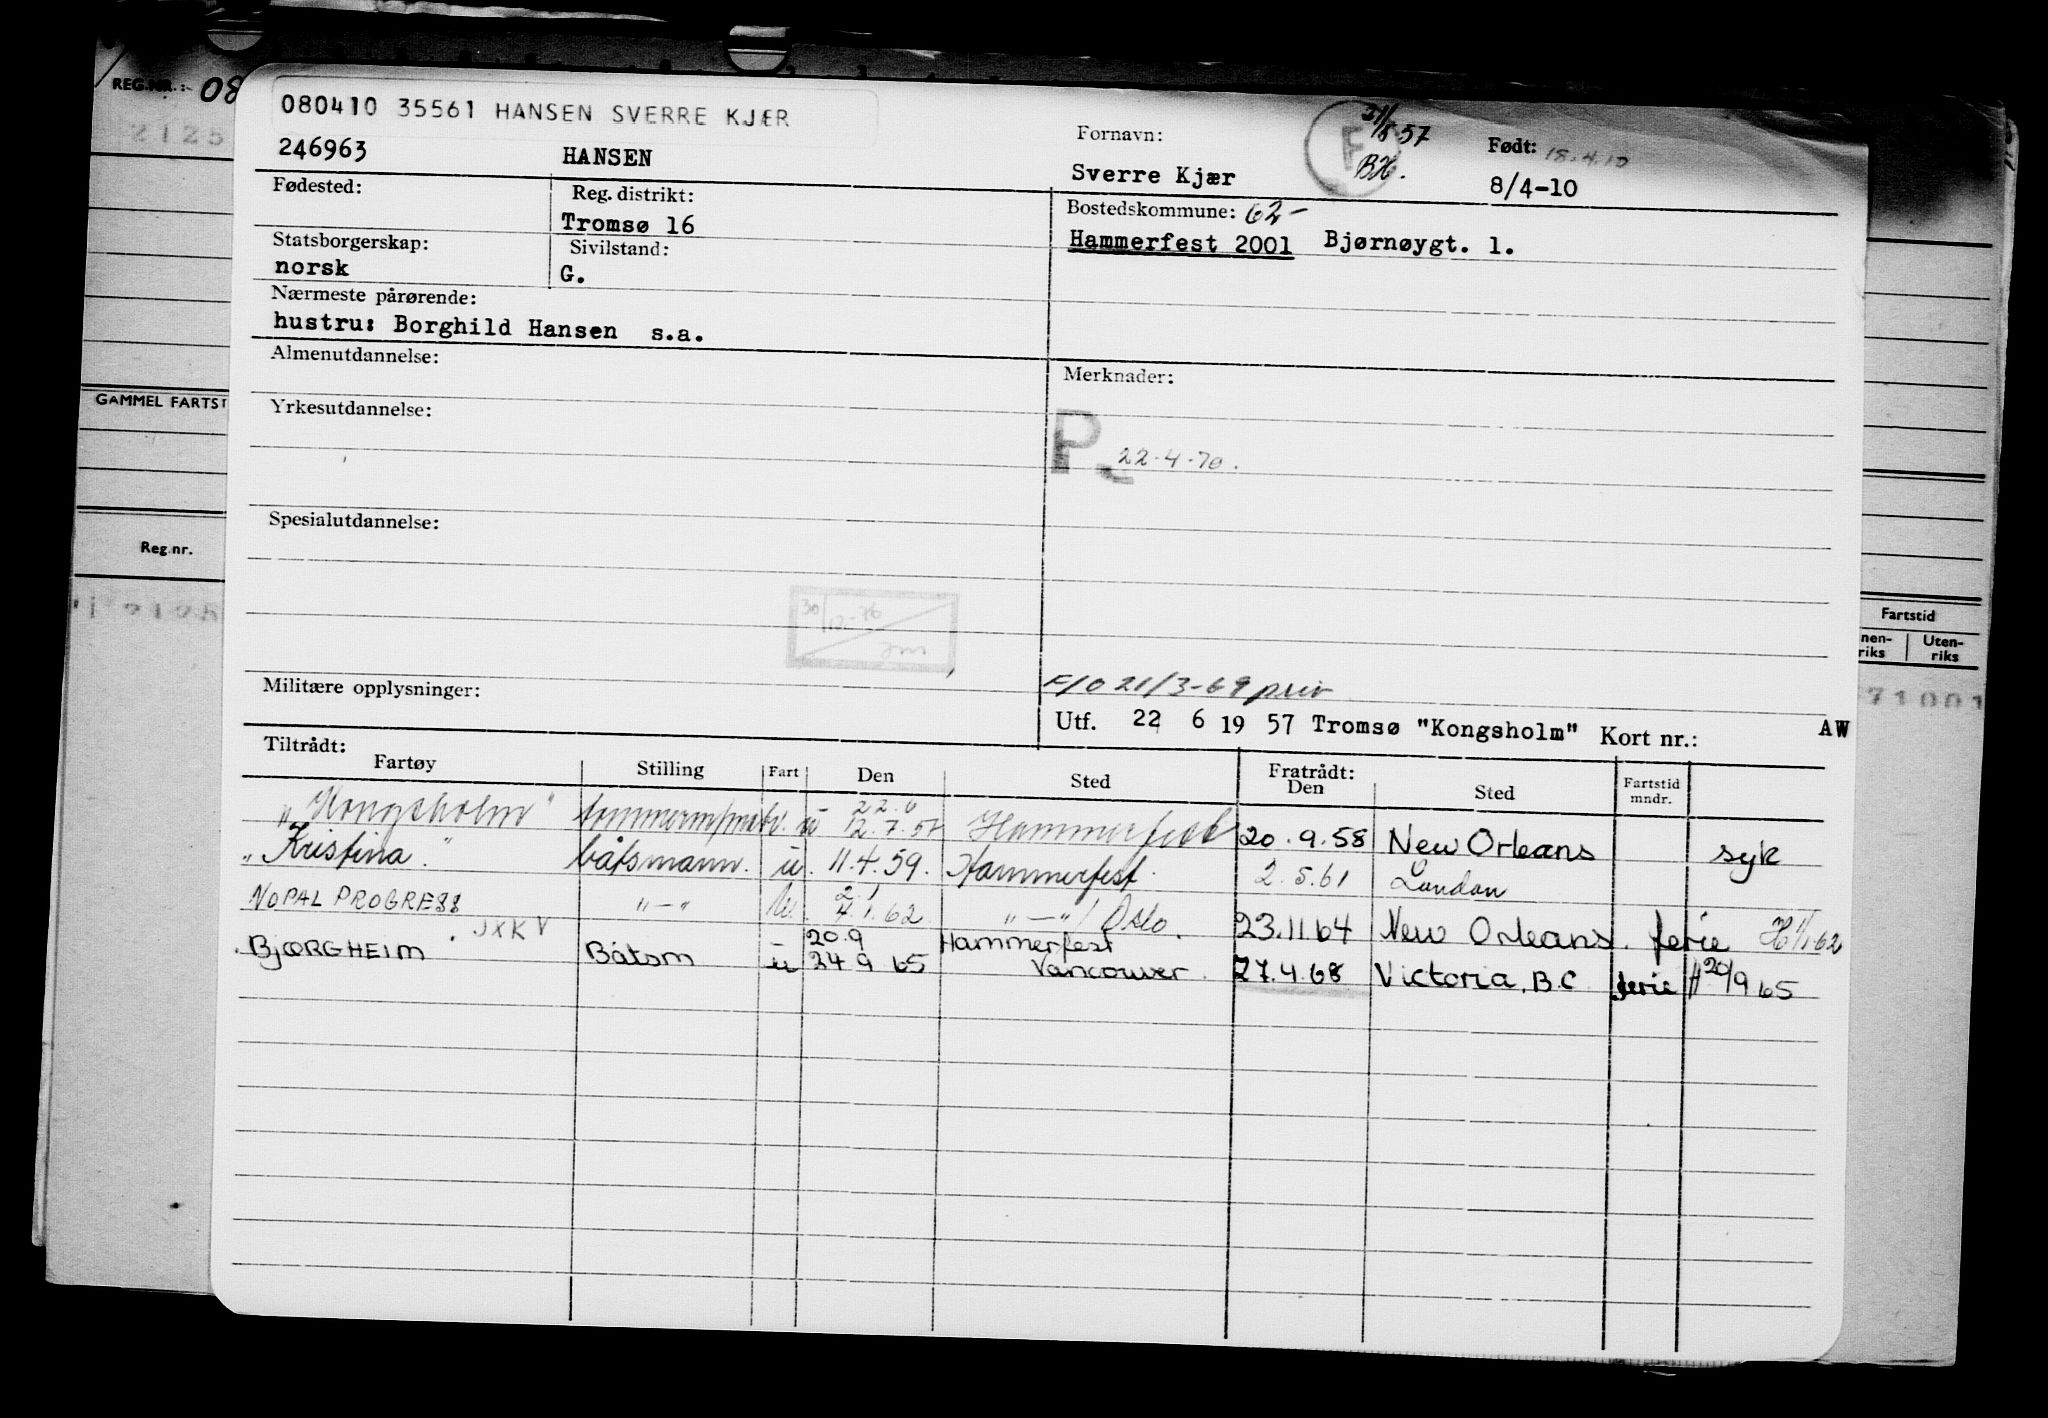 REG.NR.: 08
2125
GAMMEL FARTST
Reg.nr.
080410 35561 HANSEN SVERRE KJÆR
246963 HANSEN
Fornavn: Sverre Kjær
F 21/8 57 BH.
Født: 18.4.10
8/4-10
Fødested:
Reg. distrikt: Tromsø 16
Bostedskommune: 62-
Hammerfest 2001 Bjørnøygt. 1.
Statsborgerskap: norsk
Sivilstand: G.
Nærmeste pårørende:
hustru: Borghild Hansen s.a.
Almenutdannelse:
Merknader:
Yrkesutdannelse:
P 22.4.70.
Spesialutdannelse:
30/12-76
Militære opplysninger:
F/O 21/3-69 priv
Utf. 22 6 19 57 Tromsø "Kongsholm" Kort nr.: AW
Tiltrådt: Fartøy Stilling Fart Den Sted Fratrådt: Den Sted Fartstid mndr.
"Kongsholm" u 22.6 12.7.57 Hammerfest 20.9.58 New Orleans syk
"Kristina" båtsmann. u. 11.4.59. Hammerfest. 2.5.61 London
NOPAL PROGRESS "-" 2.1 4.1.62 "-" / Oslo. 23.11.64 New Orleans. ferie H 1/1-62
JXKV
BJØRGHEIM Båtsm u 20.9 24.9 65 Hammerfest Vancouver. 27.4.68 Victoria, B.C ferie H 20/9 65
Fartstid
nen-riks Uten-riks
71001